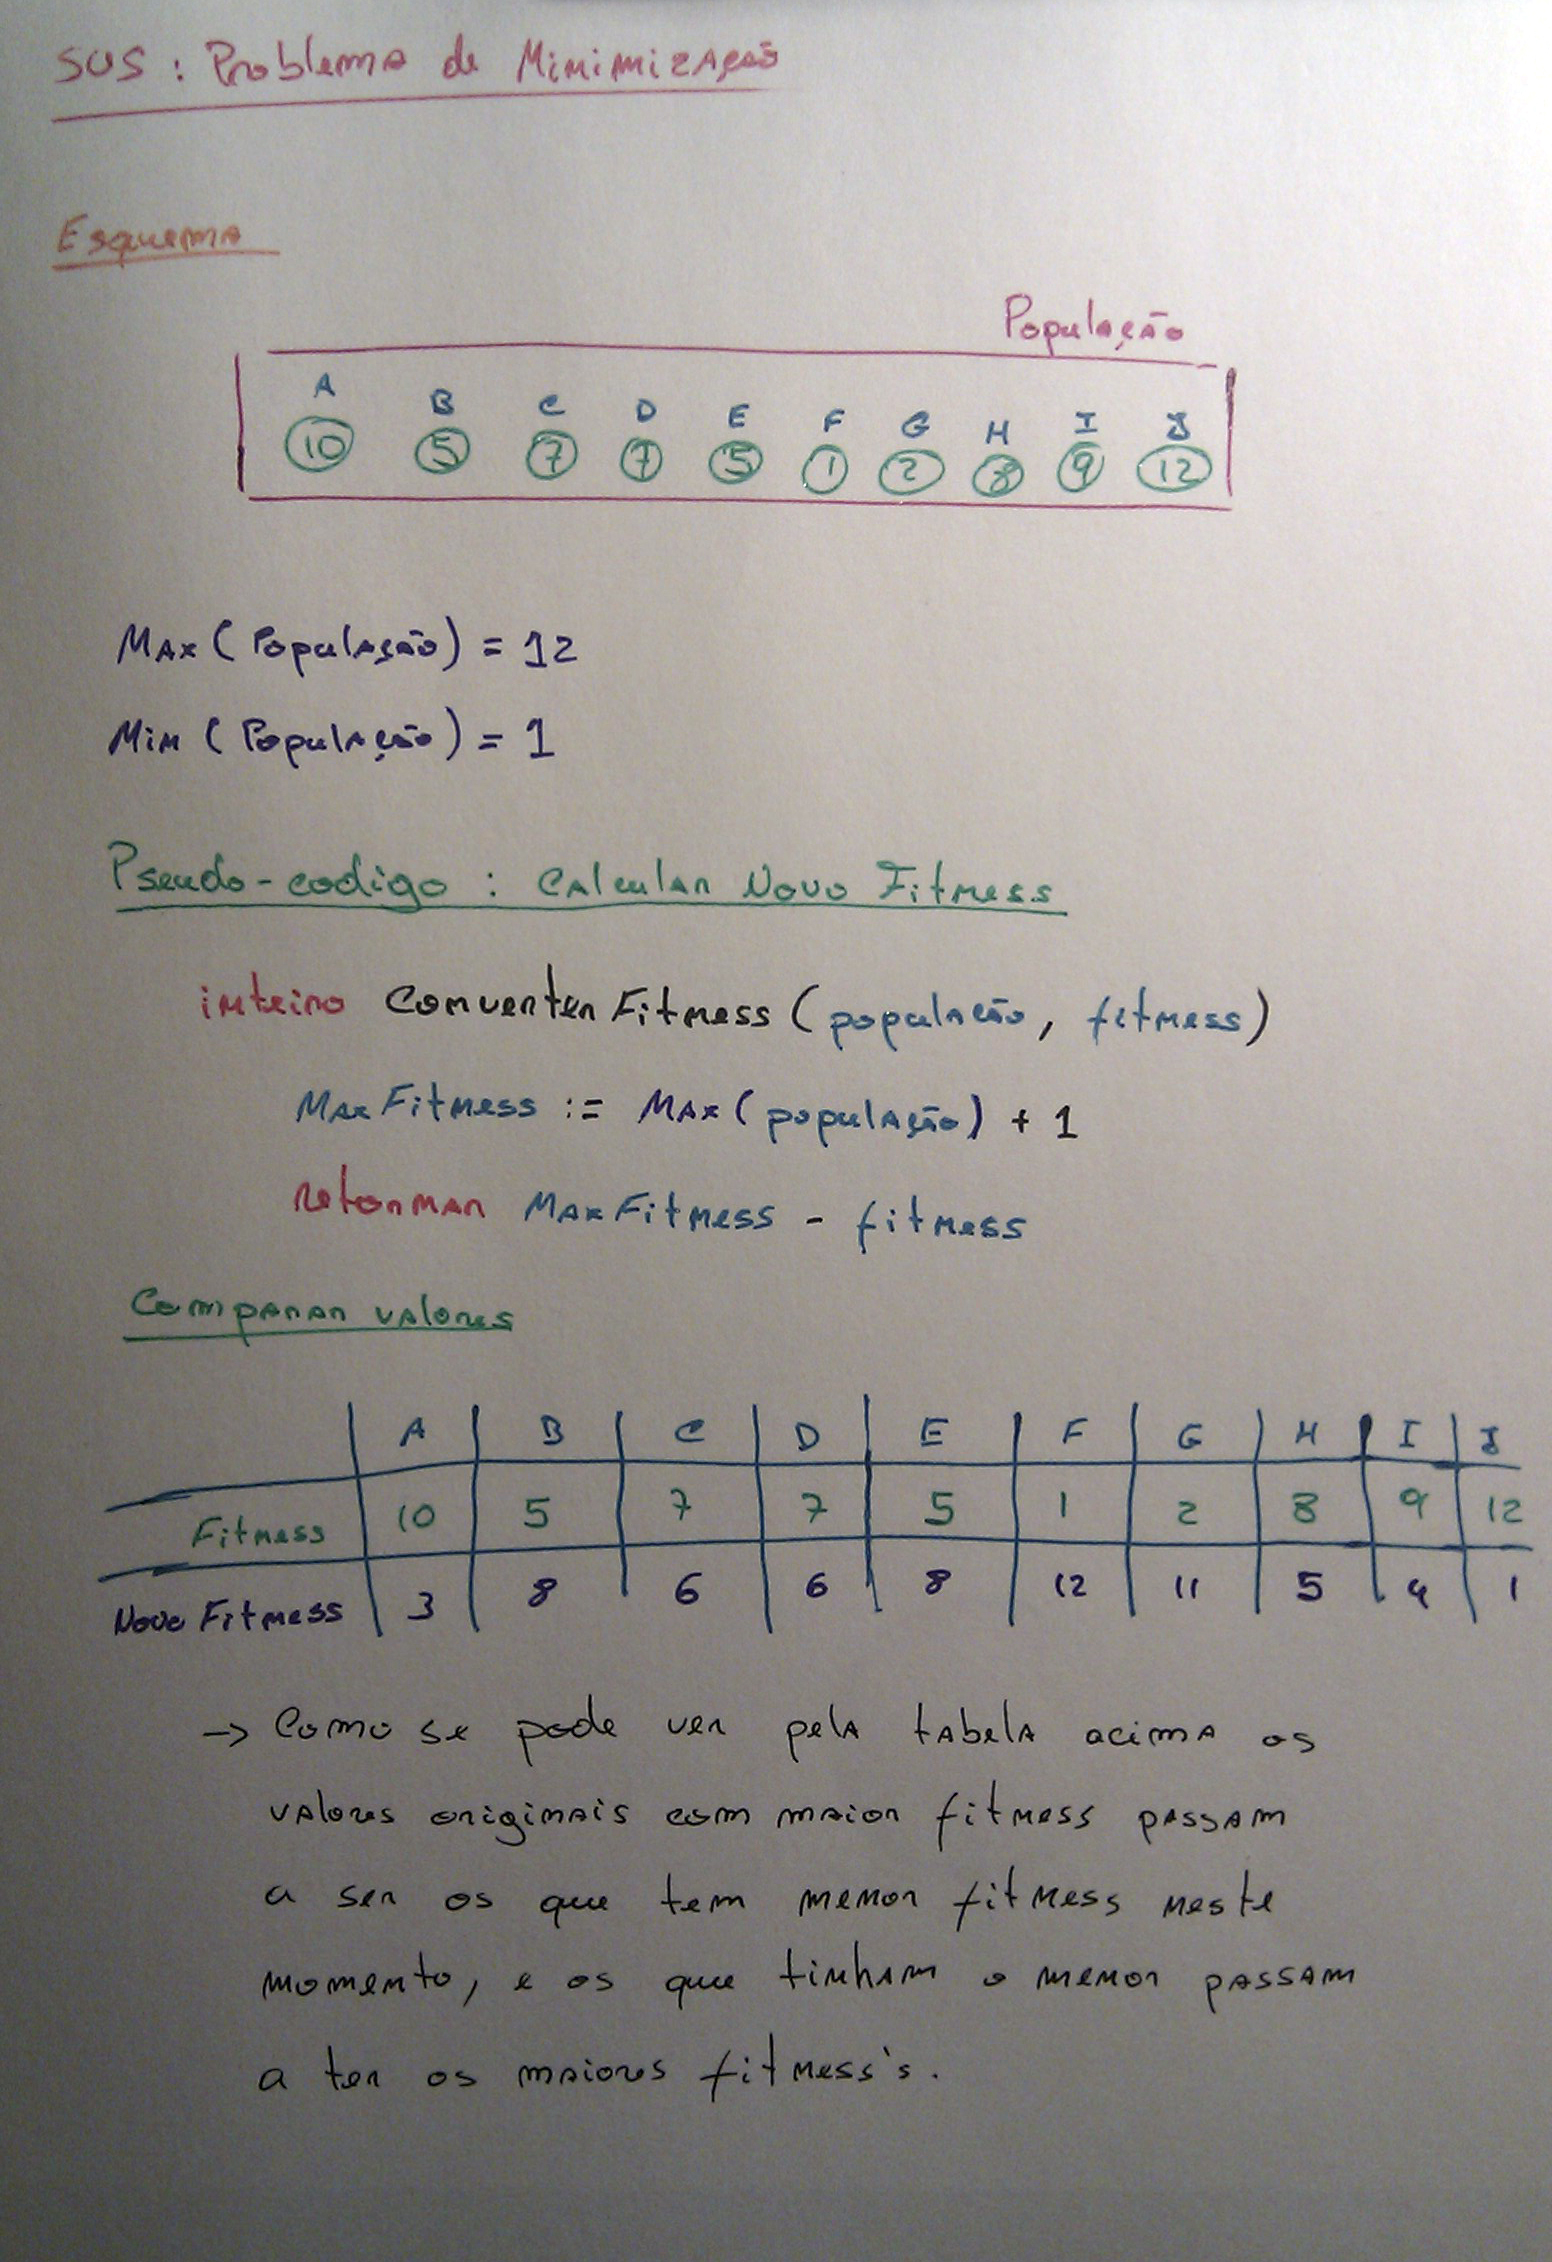 SUS : Problema de Minimização
Esquema
População
A B C D E F G H I J
10 5 7 7 5 1 2 8 9 12
Max (População) = 12
Min (População) = 1
Pseudo-codigo : Calcular Novo Fitness
inteiro ConverterFitness (população, fitness)
MaxFitness := Max (população) + 1
retornar MaxFitness - fitness
Comparar valores
A B C D E F G H I J
Fitness 10 5 7 7 5 1 2 8 9 12
Novo Fitness 3 8 6 6 8 12 11 5 4 1
-> Como se pode ver pela tabela acima os
valores originais com maior fitness passam
a ser os que tem menor fitness neste
momento, e os que tinham o menor passam
a ter os maiores fitness's.